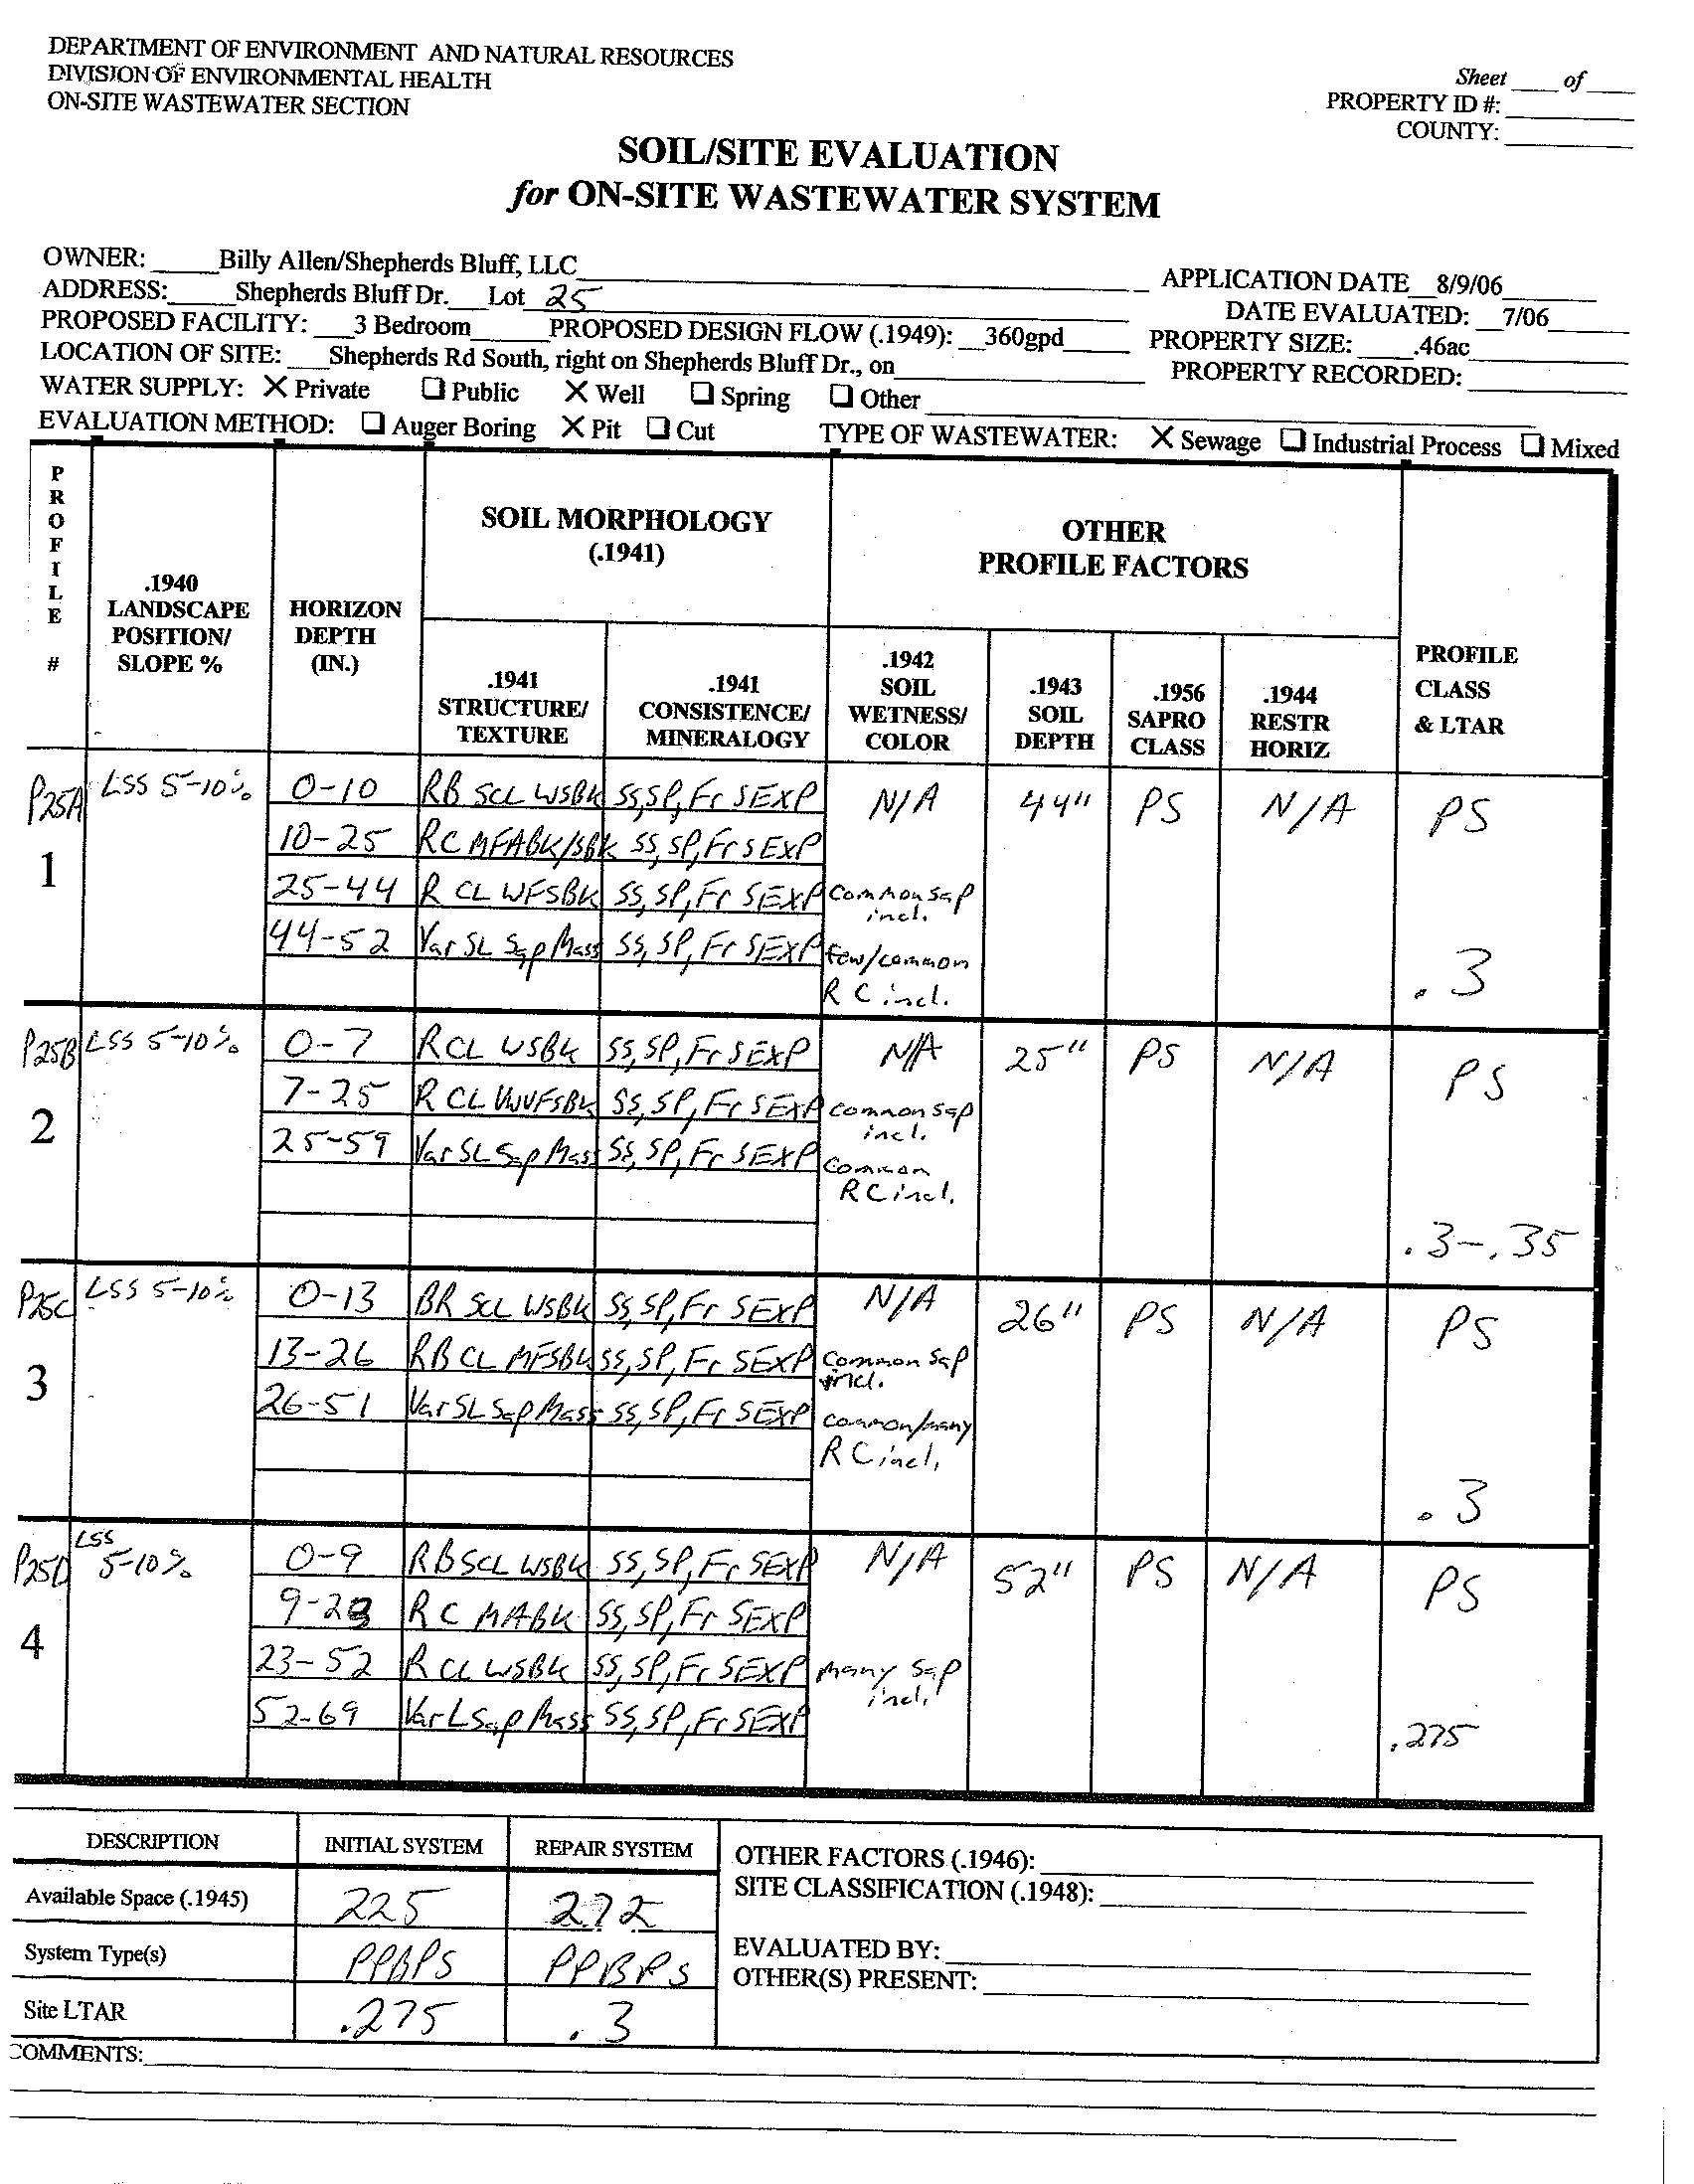 DEPARTMENT OF ENVIRONMENT AND NATURAL RESOURCES
DIVISION OF ENVIRONMENTAL HEALTH
ON-SITE WASTEWATER SECTION
Sheet ____ of ____
PROPERTY ID #: ____
COUNTY: ____
SOIL/SITE EVALUATION
for ON-SITE WASTEWATER SYSTEM
OWNER: Billy Allen/Shepherds Bluff, LLC
APPLICATION DATE 8/9/06
ADDRESS: Shepherds Bluff Dr. Lot 25
DATE EVALUATED: 7/06
PROPOSED FACILITY: 3 Bedroom PROPOSED DESIGN FLOW (.1949): 360gpd PROPERTY SIZE: .46ac
LOCATION OF SITE: Shepherds Rd South, right on Shepherds Bluff Dr., on
PROPERTY RECORDED:
WATER SUPPLY: X Private ❑ Public X Well ❑ Spring ❑ Other
EVALUATION METHOD: ❑ Auger Boring X Pit ❑ Cut TYPE OF WASTEWATER: X Sewage ❑ Industrial Process ❑ Mixed
PROFILE #
.1940 LANDSCAPE POSITION/ SLOPE %
HORIZON DEPTH (IN.)
SOIL MORPHOLOGY (.1941)
.1941 STRUCTURE/ TEXTURE
.1941 CONSISTENCE/ MINERALOGY
OTHER PROFILE FACTORS
.1942 SOIL WETNESS/ COLOR
.1943 SOIL DEPTH
.1956 SAPRO CLASS
.1944 RESTR HORIZ
PROFILE CLASS & LTAR
P25A LSS 5-10% 0-10 RB SCL WSBK SS,SP,Fr SEXP N/A 44" PS N/A PS
1 10-25 RC MFABK/SBK SS,SP,Fr SEXP
25-44 R CL WFSBK SS,SP,Fr SEXP common sap incl.
44-52 Var SL Sap Mass SS,SP,Fr SEXP few/common R C incl. .3
P25B LSS 5-10% 0-7 RCL WSBK SS,SP,Fr SEXP N/A 25" PS N/A PS
2 7-25 R CL VWFSBK SS,SP,Fr SEXP common sap incl.
25-59 Var SL Sap Mass SS,SP,Fr SEXP common R C incl. .3-.35
P25C LSS 5-10% 0-13 BR SCL WSBK SS,SP,Fr SEXP N/A 26" PS N/A PS
3 13-26 RB CL MFSBK SS,SP,Fr SEXP common sap incl.
26-51 Var SL Sap Mass SS,SP,Fr SEXP common/many R C incl. .3
P25D LSS 5-10% 0-9 RB SCL WSBK SS,SP,Fr SEXP N/A 52" PS N/A PS
4 9-23 R C MABK SS,SP,Fr SEXP
23-52 R CL WSBK SS,SP,Fr SEXP many sap incl.
52-69 Var L Sap Mass SS,SP,Fr SEXP .275
DESCRIPTION INITIAL SYSTEM REPAIR SYSTEM
Available Space (.1945) 225 272
System Type(s) PPBPS PPBPS
Site LTAR .275 .3
OTHER FACTORS (.1946):
SITE CLASSIFICATION (.1948):
EVALUATED BY:
OTHER(S) PRESENT:
COMMENTS: